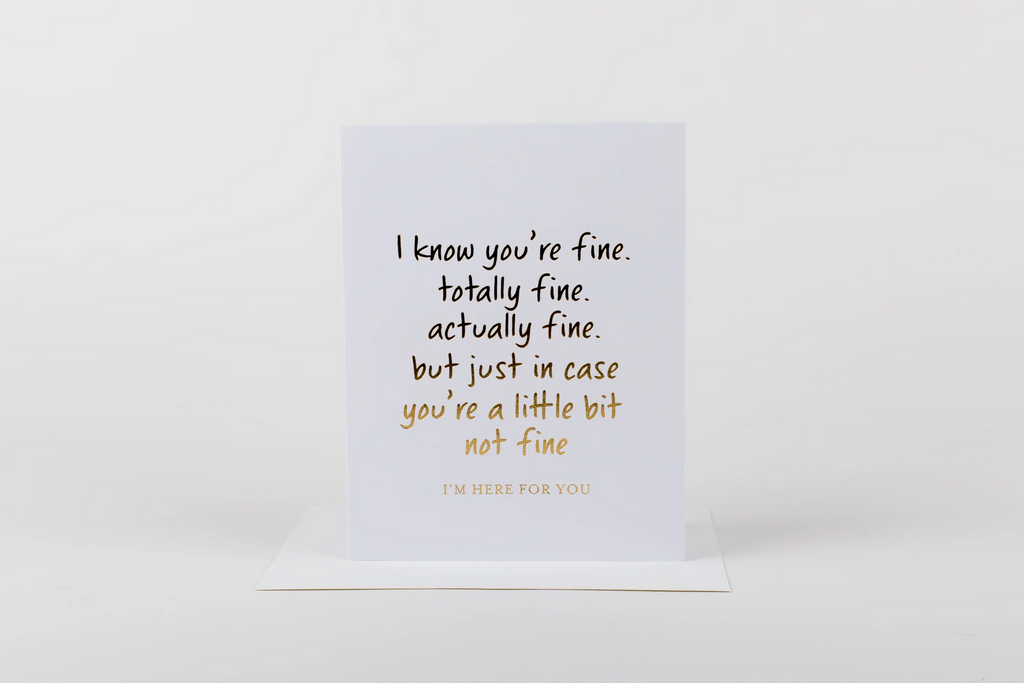 I know you're fine.
totally fine.
actually fine.
but just in case
you're a little bit
not fine
I'M HERE FOR YOU